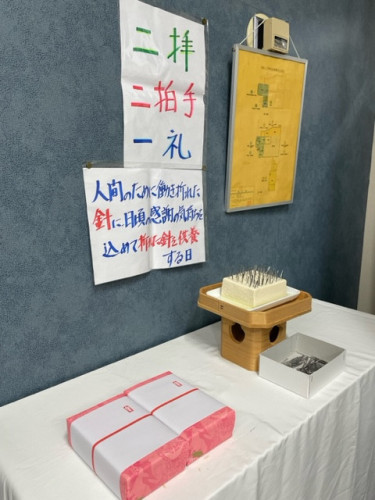 二拝
二拍手
一礼
人間のために働き折れた
針に日頃の感謝の気持ちを
込めて折れた針を供養
する日